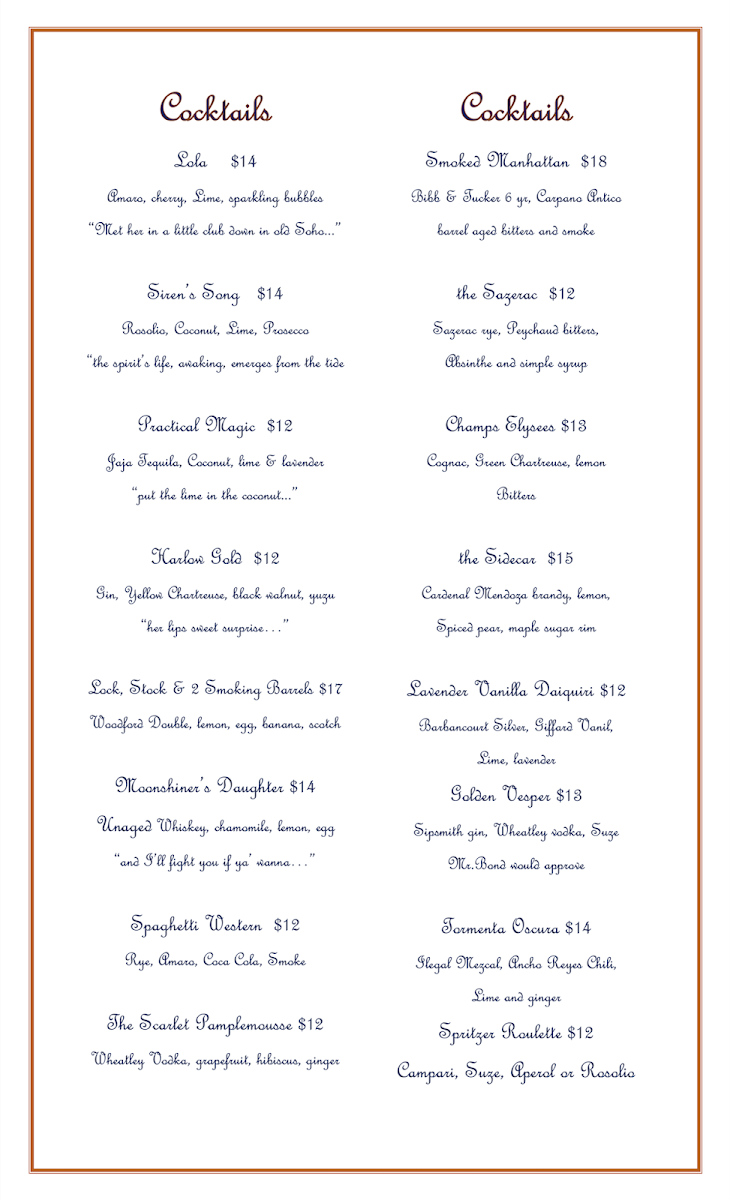 Cocktails
Lola $14
Amaro, cherry, Lime, sparkling bubbles
“Met her in a little club down in old Soho...”
Siren’s Song $14
Rosolio, Coconut, Lime, Prosecco
“the spirit’s life, awaking, emerges from the tide
Practical Magic $12
Jaja Tequila, Coconut, lime & lavender
“put the lime in the coconut...”
Harlow Gold $12
Gin, Yellow Chartreuse, black walnut, yuzu
“her lips sweet surprise...”
Lock, Stock & 2 Smoking Barrels $17
Woodford Double, lemon, egg, banana, scotch
Moonshiner’s Daughter $14
Unaged Whiskey, chamomile, lemon, egg
“and I’ll fight you if ya’ wanna...”
Spaghetti Western $12
Rye, Amaro, Coca Cola, Smoke
The Scarlet Pamplemousse $12
Wheatley Vodka, grapefruit, hibiscus, ginger
Cocktails
Smoked Manhattan $18
Bibb & Tucker 6 yr, Carpano Antico
barrel aged bitters and smoke
the Sazerac $12
Sazerac rye, Peychaud bitters,
Absinthe and simple syrup
Champs Elysees $13
Cognac, Green Chartreuse, lemon
Bitters
the Sidecar $15
Cardenal Mendoza brandy, lemon,
Spiced pear, maple sugar rim
Lavender Vanilla Daiquiri $12
Barbancourt Silver, Giffard Vanil,
Lime, lavender
Golden Vesper $13
Sipsmith gin, Wheatley vodka, Suze
Mr.Bond would approve
Tormenta Oscura $14
Ilegal Mezcal, Ancho Reyes Chili,
Lime and ginger
Spritzer Roulette $12
Campari, Suze, Aperol or Rosolio